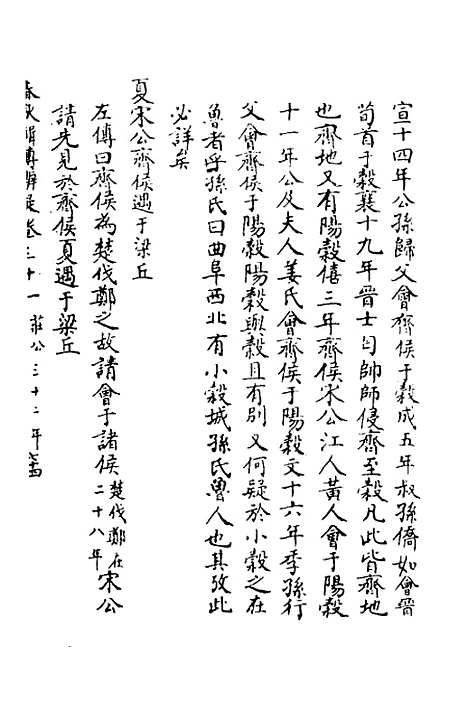 宣十四年公孫歸父會齊侯于穀成五年叔孫僑如會晉
荀首于穀襄十九年晉士匄帥師侵齊至穀凡此皆齊地
也齊地又有陽穀僖三年齊侯宋公江人黃人會于陽穀
十一年公及夫人姜氏會齊侯于陽穀文十六年季孫行
父會齊侯于陽穀陽穀與穀且有別又何疑於小穀之在
魯者乎孫氏曰曲阜西北有小穀城孫氏魯人也其攷此
必詳矣
夏宋公齊侯遇于梁丘
左傳曰齊侯為楚伐鄭之故請會于諸侯楚伐鄭在二十八年宋公
請先見於齊侯夏遇于梁丘
春秋輯傳辨疑卷三十一 莊公三十二年 七十四